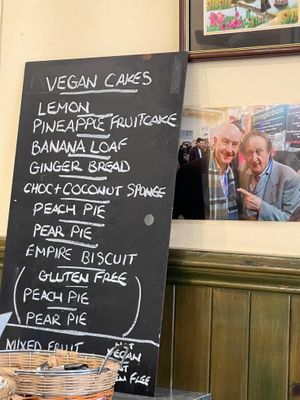 VEGAN CAKES
LEMON
PINEAPPLE FRUITCAKE
BANANA LOAF
GINGER BREAD
CHOC + COCONUT SPONGE
PEACH PIE
PEAR PIE
EMPIRE BISCUIT
GLUTEN FREE
(PEACH PIE
PEAR PIE)
MIXED FRUIT
NOT
VEGAN
NOT
GLUTEN FREE